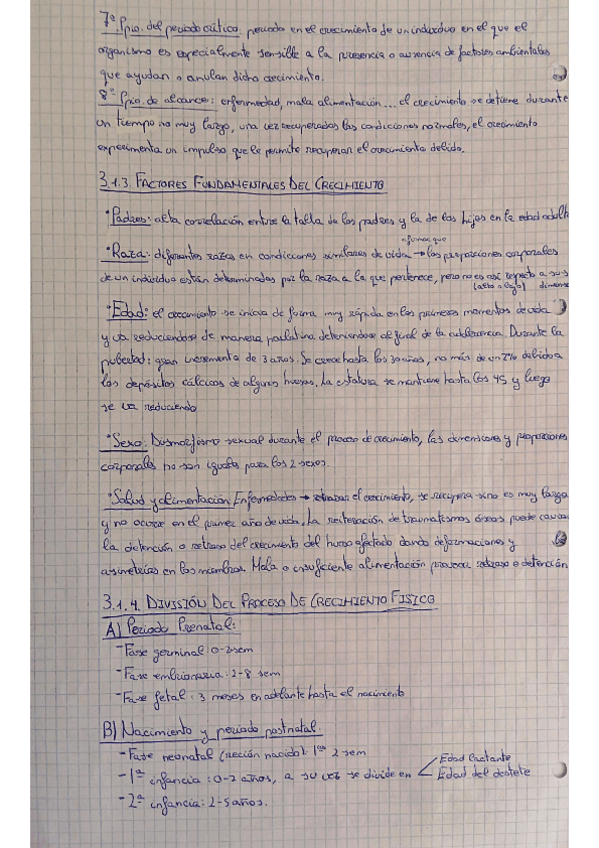 7º Ppio. del periodo crítico: periodo en el crecimiento de un individuo en el que el
organismo es especialmente sensible a la presencia o ausencia de factores ambientales
que ayudan o anulan dicho crecimiento.
8º Ppio. de alcance: enfermedad, mala alimentación... el crecimiento se detiene durante
un tiempo no muy largo, una vez recuperadas las condiciones normales, el crecimiento
experimenta un impulso que le permite recuperar el crecimiento debido.
3.1.3. FACTORES FUNDAMENTALES DEL CRECIMIENTO
• Padres: alta correlación entre la talla de los padres y la de los hijos en la edad adult
• Raza: diferentes razas en condiciones similares de vida → las proporciones corporales
de un individuo están determinadas por la raza a la que pertenece, pero no es así respecto a sus
(alto o bajo)
• Edad: el crecimiento se inicia de forma muy rápida en los primeros momentos de vida
y va reduciéndose de manera paulatina deteniéndose al final de la adolescencia. Durante la
pubertad: gran incremento de 3 años. Se crece hasta los 30 años, no más de un 2% debido a
los depósitos cálcicos de algunos huesos. La estatura se mantiene hasta los 45 y luego
se va reduciendo
• Sexo: Dismorfismo sexual durante el proceso de crecimiento, las dimensiones y proporciones
corporales no son iguales para los 2 sexos.
• Salud y alimentación: Enfermedades → retrasan el crecimiento, se recupera si no es muy larga
y no ocurre en el primer año de vida. La reiteración de traumatismos óseos puede causa
la detención o retraso del crecimiento del hueso afectado dando deformaciones y
asimetrías en los miembros. Mala o insuficiente alimentación provoca retraso o detención
3.1.4. DIVISIÓN DEL PROCESO DE CRECIMIENTO FISICO
A) Periodo Prenatal:
- Fase germinal: 0-2 sem
- Fase embrionaria: 2-8 sem
- Fase fetal: 3 meses en adelante hasta el nacimiento
B) Nacimiento y periodo postnatal.
- Fase neonatal (recién nacido): 1as 2 sem
- 1ª infancia: 0-2 años, a su vez se divide en
Edad lactante
Edad del destete
- 2ª infancia: 2-5 años.